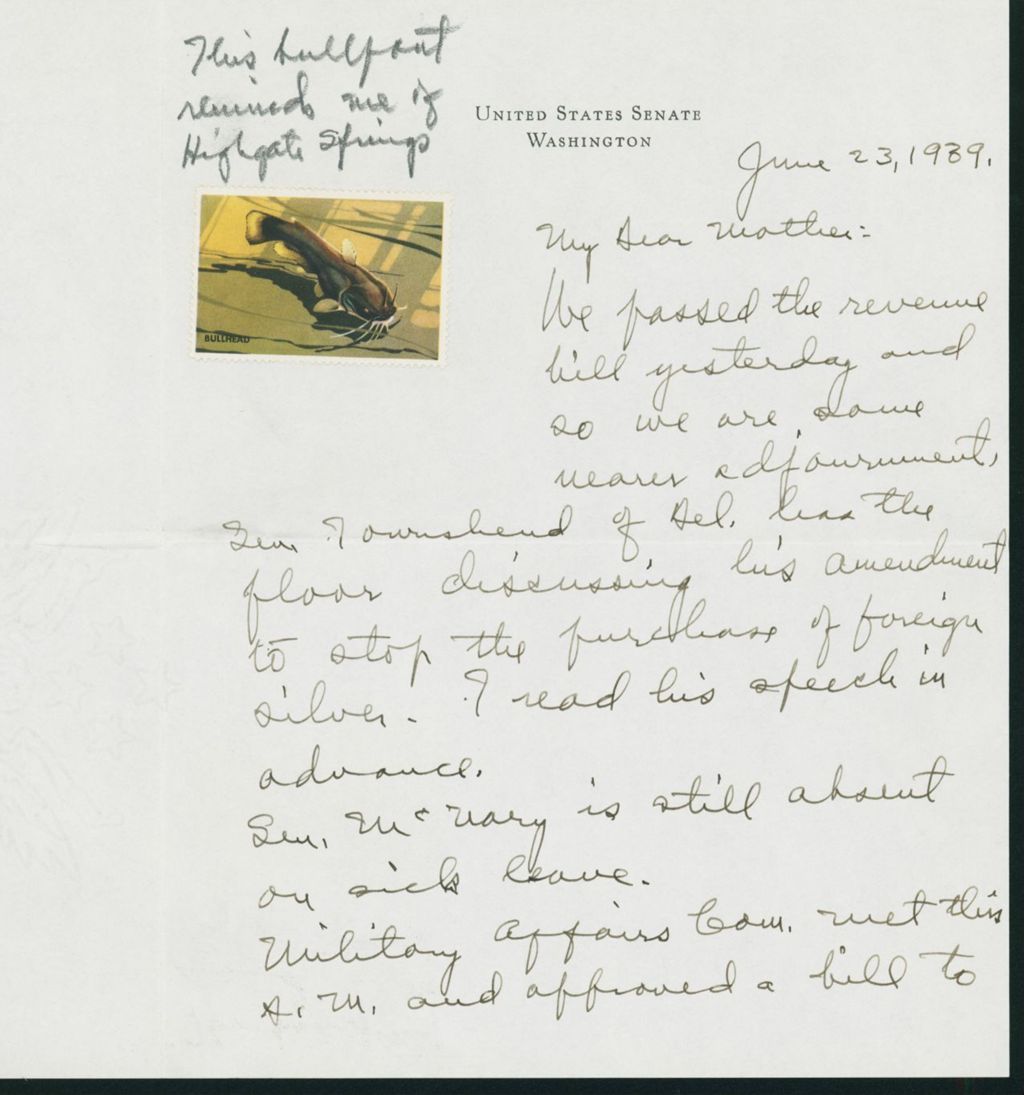 This bullpout
reminds me of
Highgate Springs
UNITED STATES SENATE
WASHINGTON
June 23, 1939.
BULLHEAD
My Dear Mother:-
We passed the revenue
bill yesterday and
so we are some
nearer adjournment.
Sen. Townshend of Del. has the
floor discussing his amendment
to stop the purchase of foreign
silver. I read his speech in
advance.
Sen. McNary is still absent
on sick leave.
Military Affairs Com. met this
A.M. and approved a bill to